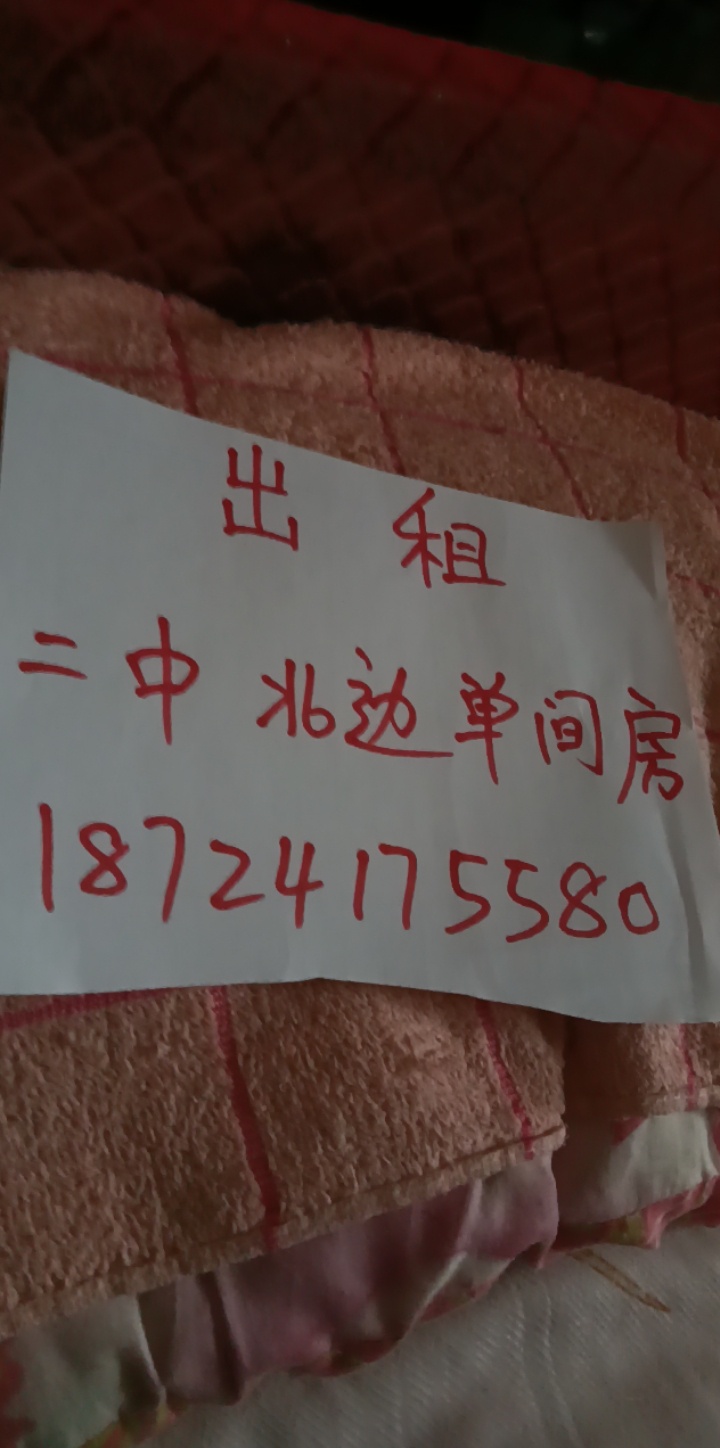 出租
二中北边单间房
18724175580